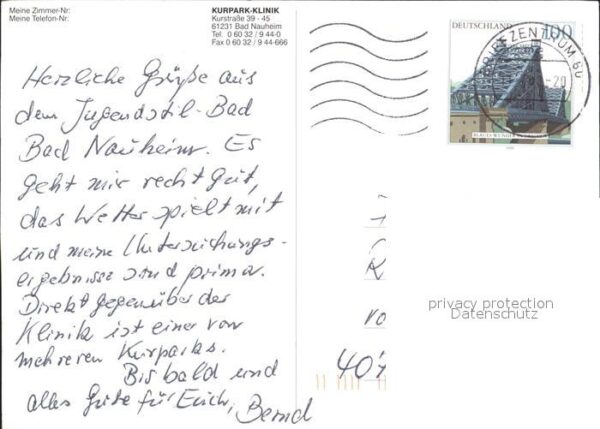 Meine Zimmer-Nr:
Meine Telefon-Nr:
KURPARK-KLINIK
Kurstraße 39 - 45
61231 Bad Nauheim
Tel. 0 60 32 / 9 44-0
Fax 0 60 32 / 9 44-666
Herzliche Grüße aus
dem Jugendstil-Bad
Bad Nauheim. Es
geht mir recht gut,
das Wetter spielt mit
und meine Untersuchungs-
ergebnisse sind prima.
Direkt gegenüber der
Klinik ist einer von
mehreren Kurparks.
Bis bald und
alles Gute für Euch, Bernd
DEUTSCHLAND 100
BRIEFZENTRUM 60
-20
BLAUES WUNDER
R
vo
40
privacy protection
Datenschutz